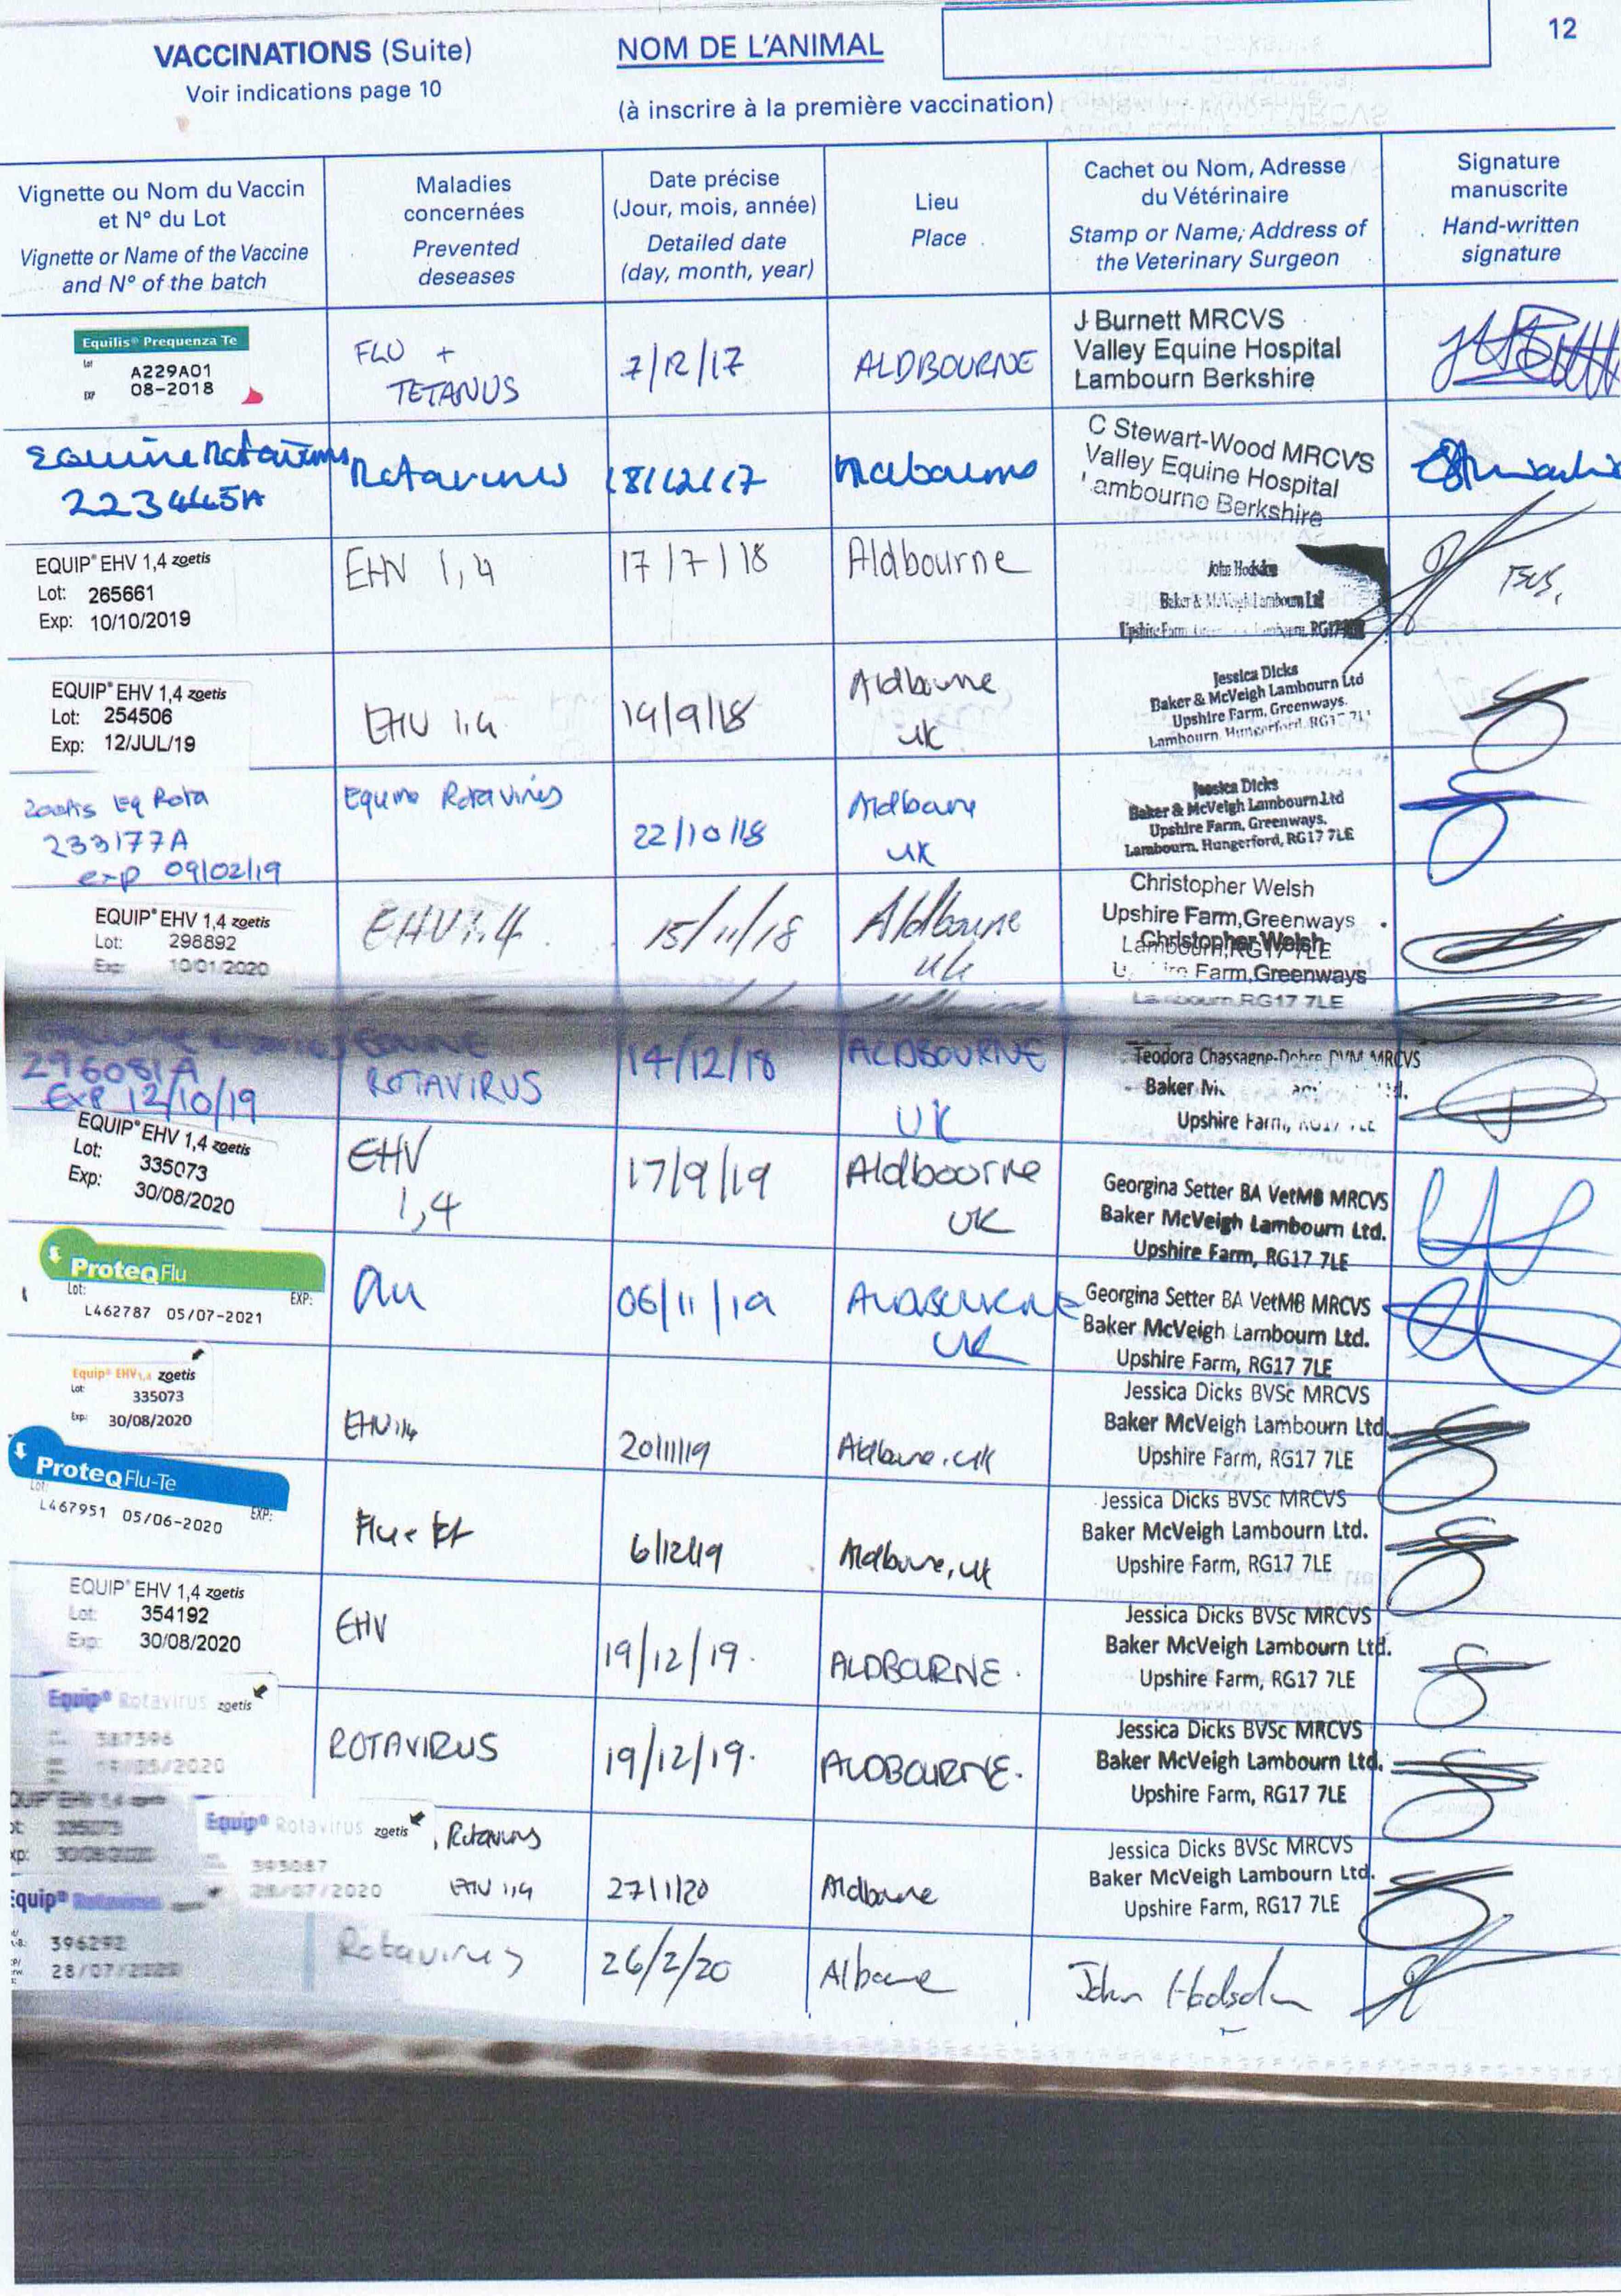 12
VACCINATIONS (Suite)
Voir indications page 10
NOM DE L'ANIMAL
(à inscrire à la première vaccination)
Vignette ou Nom du Vaccin
et N° du Lot
Vignette or Name of the Vaccine
and N° of the batch
Maladies
concernées
Prevented
deseases
Date précise
(Jour, mois, année)
Detailed date
(day, month, year)
Lieu
Place
Cachet ou Nom, Adresse
du Vétérinaire
Stamp or Name, Address of
the Veterinary Surgeon
Signature
manuscrite
Hand-written
signature
Equilis® Prequenza Te
Lot A229A01
EXP 08-2018
FLU +
TETANUS
7/12/17
ALDBOURNE
J Burnett MRCVS
Valley Equine Hospital
Lambourn Berkshire
Equine Rotavirus
223445A
Rotavirus
18/12/17
C Stewart-Wood MRCVS
Valley Equine Hospital
Lambourne Berkshire
EQUIP® EHV 1,4 zoetis
Lot: 265661
Exp: 10/10/2019
EHV 1,4
17/7/18
Aldbourne
John Hodsdon
Baker & McVeigh Lambourn Ltd
Upshire Farm RG17
EQUIP® EHV 1,4 zoetis
Lot: 254506
Exp: 12/JUL/19
EHV 1,4
19/9/18
Aldbourne
UK
Jessica Dicks
Baker & McVeigh Lambourn Ltd
Upshire Farm, Greenways.
Lambourn, Hungerford, RG17 7L
Zoetis Eq Rota
233177A
exp 09/02/19
Equine Rotavirus
22/10/18
Aldbourne
UK
Jessica Dicks
Baker & McVeigh Lambourn Ltd
Upshire Farm, Greenways.
Lambourn, Hungerford, RG17 7LE
EQUIP® EHV 1,4 zoetis
Lot: 298892
Exp: 10/01/2020
EHV 1.4
15/11/18
Aldbourne
UK
Christopher Welsh
Upshire Farm,Greenways
Lambourn,RG17 7LE
Christopher Welsh
Farm,Greenways
Lambourn,RG17 7LE
296081A
Exp 12/10/19
EQUINE
ROTAVIRUS
14/12/18
ALDBOURNE
UK
Teodora Chassagne-Dobre DVM MRCVS
Baker
Upshire Farm, RG17 7LE
EQUIP® EHV 1,4 zoetis
Lot: 335073
Exp: 30/08/2020
EHV
1,4
17/9/19
Aldbourne
UK
Georgina Setter BA VetMB MRCVS
Baker McVeigh Lambourn Ltd.
Upshire Farm, RG17 7LE
ProteqFlu
Lot: EXP:
L462787 05/07-2021
06/11/19
ALDBOURNE
UK
Georgina Setter BA VetMB MRCVS
Baker McVeigh Lambourn Ltd.
Upshire Farm, RG17 7LE
Equip® EHV1,4 zoetis
Lot: 335073
Exp: 30/08/2020
EHV 1,4
20/11/19
Aldbourne, UK
Jessica Dicks BVSc MRCVS
Baker McVeigh Lambourn Ltd.
Upshire Farm, RG17 7LE
ProteqFlu-Te
Lot: EXP:
L467951 05/06-2020
6/12/19
Aldbourne, UK
Jessica Dicks BVSc MRCVS
Baker McVeigh Lambourn Ltd.
Upshire Farm, RG17 7LE
EQUIP® EHV 1,4 zoetis
Lot: 354192
Exp: 30/08/2020
EHV
19/12/19.
ALDBOURNE.
Jessica Dicks BVSc MRCVS
Baker McVeigh Lambourn Ltd.
Upshire Farm, RG17 7LE
Equip® Rotavirus zoetis
387396
ROTAVIRUS
19/12/19.
ALDBOURNE.
Jessica Dicks BVSc MRCVS
Baker McVeigh Lambourn Ltd.
Upshire Farm, RG17 7LE
335073
30/08/2020
Equip® Rotavirus zoetis
393087
28/07/2020
, Rotavirus
EHV 1,4
27/1/20
Aldbourne
Jessica Dicks BVSc MRCVS
Baker McVeigh Lambourn Ltd.
Upshire Farm, RG17 7LE
Equip® Rotavirus
396292
28/07/2020
Rotavirus
26/2/20
Albourne
John Hodsdon